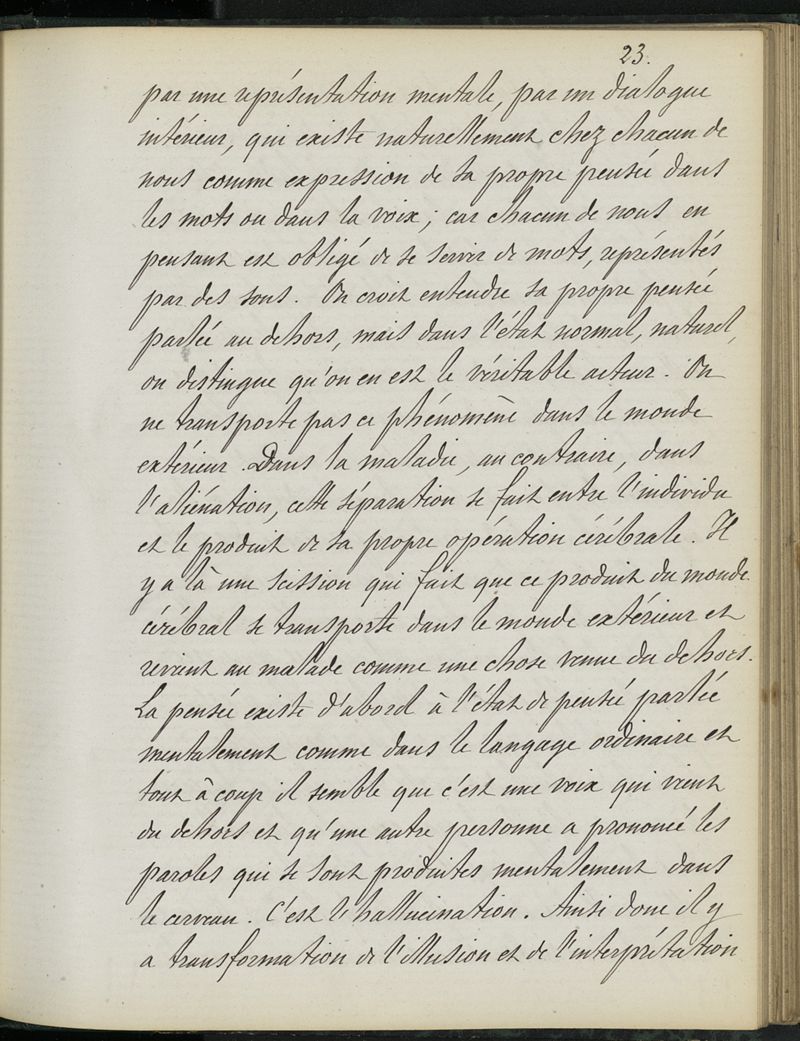 23.
par une représentation mentale, par un dialogue
intérieur, qui existe naturellement chez chacun de
nous comme expression de sa propre pensée dans
les mots ou dans la voix ; car chacun de nous en
pensant est obligé de se servir de mots, représentés
par des sons. On croit entendre sa propre pensée
parlée au dehors, mais dans l'état normal, naturel,
on distingue qu'on en est le véritable acteur. On
ne transporte pas ce phénomène dans le monde
extérieur. Dans la maladie, au contraire, dans
l'aliénation, cette séparation se fait entre l'individu
et le produit de sa propre opération cérébrale. Il
y a là une scission qui fait que ce produit du monde
cérébral se transporte dans le monde extérieur et
revient au malade comme une chose venue du dehors.
La pensée existe d'abord à l'état de pensée parlée
mentalement comme dans le langage ordinaire et
tout à coup il semble que c'est une voix qui vient
du dehors et qu'une autre personne a prononcé les
paroles qui se sont produites mentalement dans
le cerveau. C'est l'hallucination. Ainsi donc il y
a transformation de l'illusion et de l'interprétation